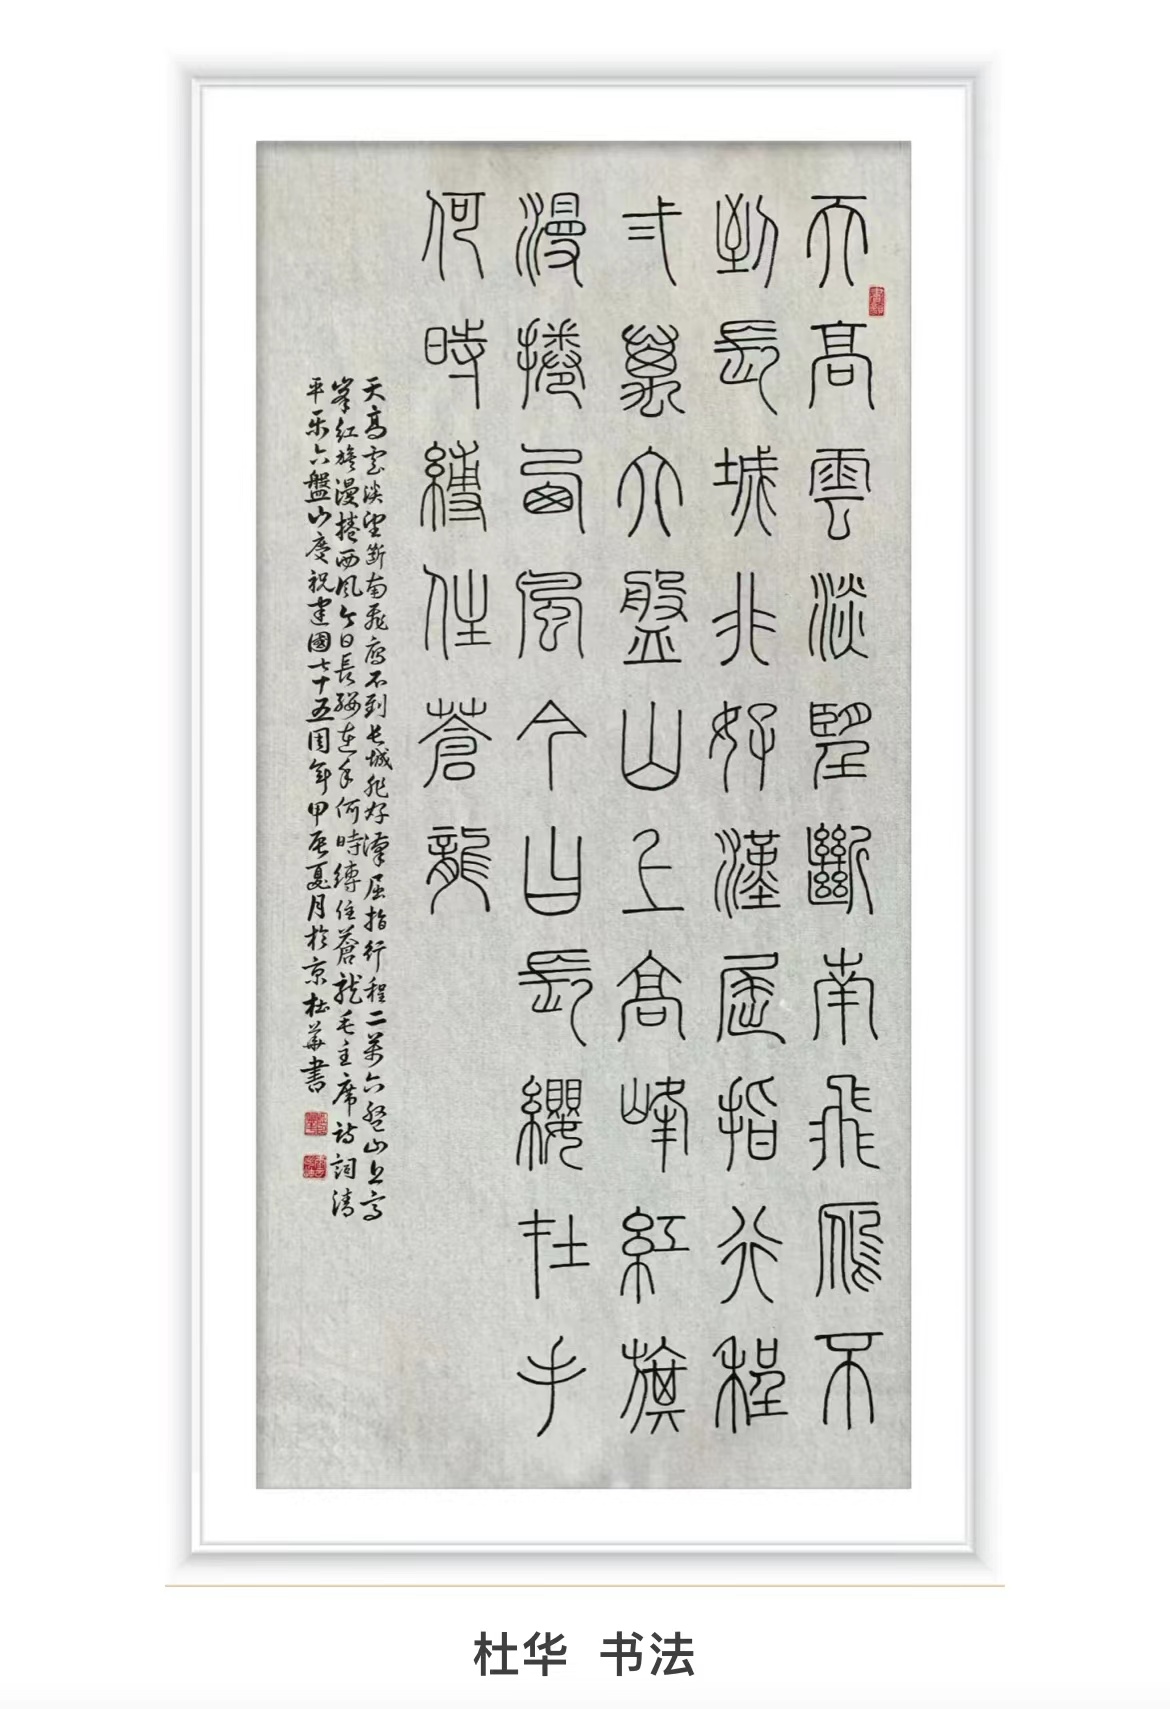 天高雲淡望斷南飛雁不
到長城非好漢屈指行程
弍萬六盤山上高峰紅旗
漫捲西風今日長纓在手
何時縛住蒼龍
天高雲淡望斷南飛雁不到长城非好漢屈指行程二萬六盤山上高
峯紅旗漫捲西風今日長纓在手何時縛住蒼龍毛主席詩詞清
平乐六盤山慶祝建國七十五周年甲辰夏月於京杜華書
杜华 书法